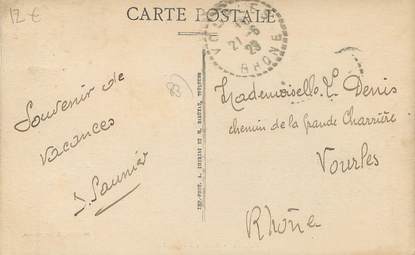 12 €
CARTE POSTALE
VOURLES
21 -8
29
RHÔNE
(83)
Souvenir de
Vacances
J. Saunier
Mademoiselle L. Denis
chemin de la Grande Charrière
Vourles
Rhône